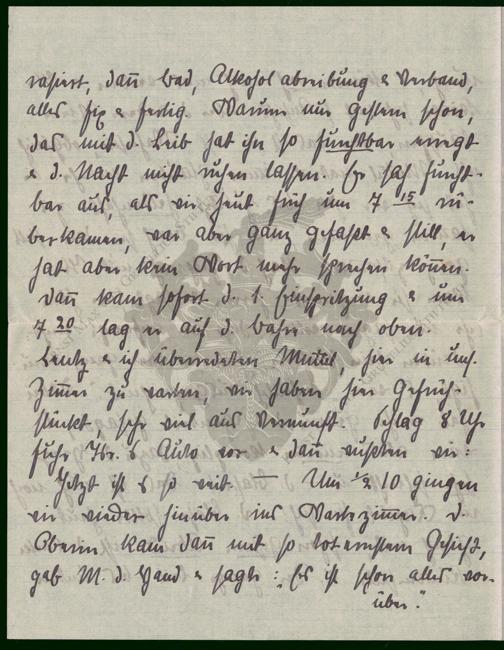 rasiert, dañ Bad, Alkoholabreibung & Verband,
alles fix & fertig. Warum nur gestern schon,
das mit d. Leib hat ihn so furchtbar erregt
& d. Nacht nicht ruhen lassen. Er sah furcht-
bar aus, als wir heut früh um 7 15 rü-
berkamen, war aber ganz gefaßt & still, er
hat aber kein Wort mehr sprechen köñen.
Dañ kam sofort d. 1. Einspritzung & um
7 20 lag er auf d. Bahre nach oben.
& ich überredeten Muttel, hier in uns.
Zimmer zu warten, wir haben hier Gefrüh-
stückt sehr viel aus Vernunft. Schlag 8 Uhr
fuhr Auto vor & dañ wußten wir:
Jetzt ist es so weit. — Um ½ 10 gingen
wir wieder hinüber ins Wartezimmer. D.
Oberin kam dañ mit so toternstem Gesicht,
gab M. d. Hand & sagte: „Es ist schon alles vor-
über."